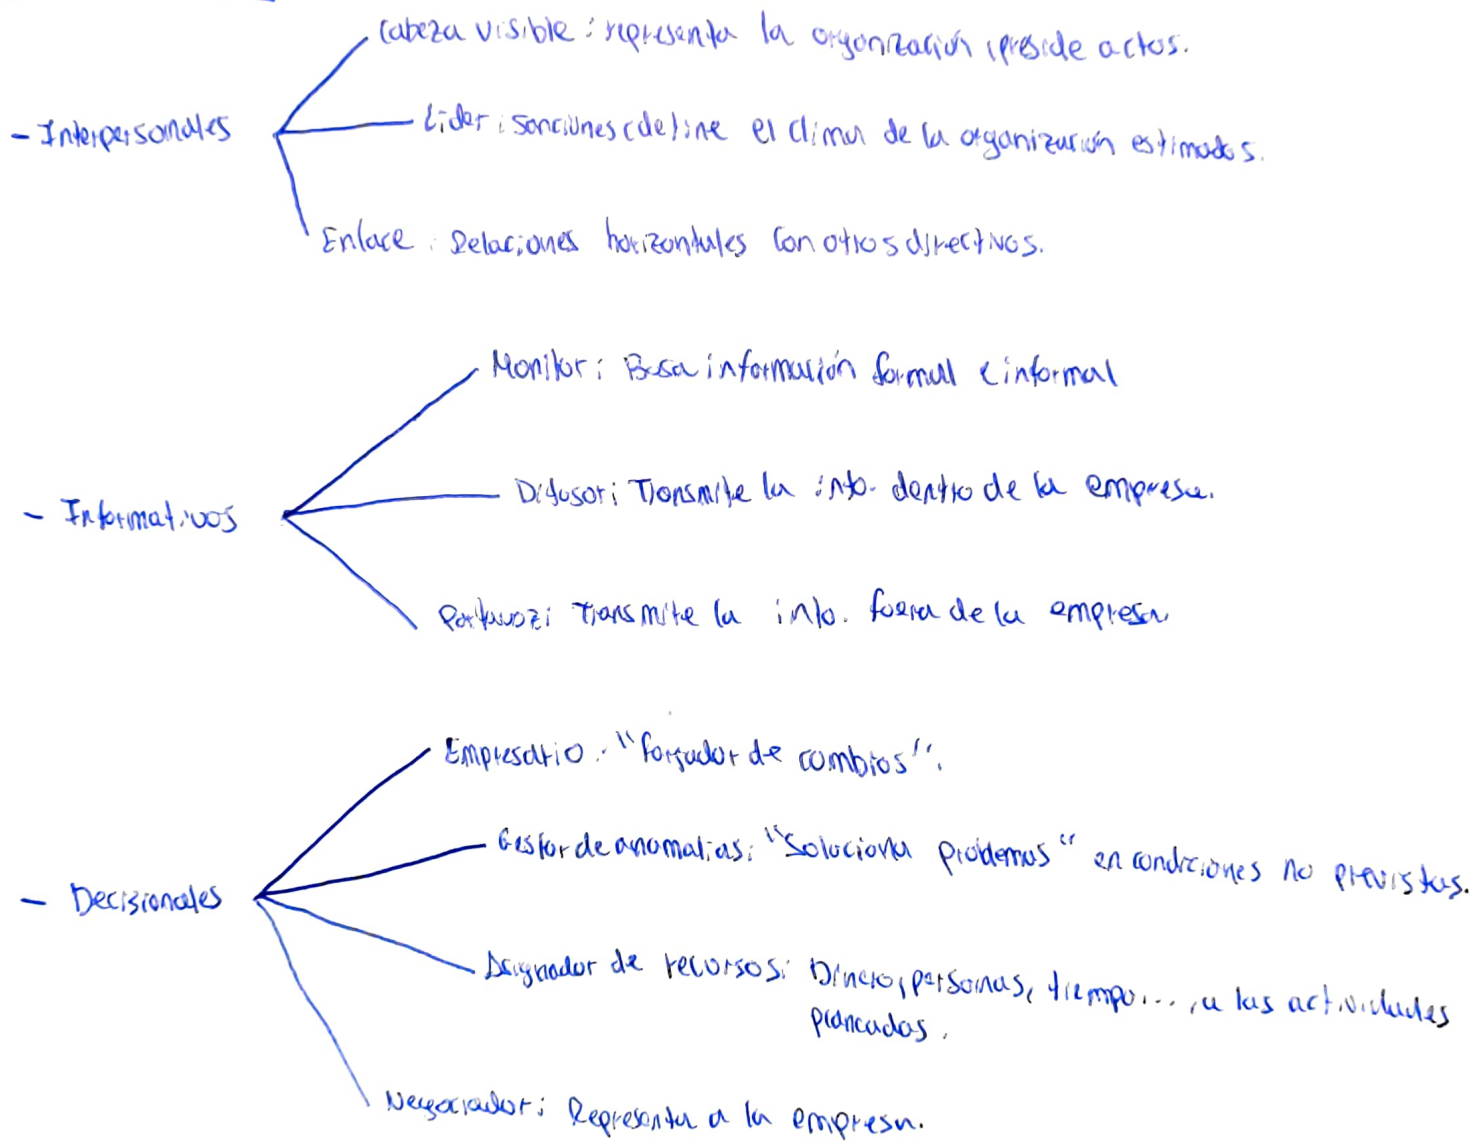 Cabeza visible: representa la organización, preside actos.
- Interpersonales
Líder: sanciones (define el clima de la organización estimados.
Enlace: Relaciones horizontales con otros directivos.
Monitor: Busca información formal e informal
Difusor: Transmite la info. dentro de la empresa.
- Informativos
Portavoz: Transmite la info. fuera de la empresa
Empresario: "forjador de cambios".
Gestor de anomalias: "Soluciona problemas" en condiciones no previstas.
- Decisionales
Asignador de recursos: Dinero, personas, tiempo..., a las actividades
planeadas.
Negociador: Representa a la empresa.